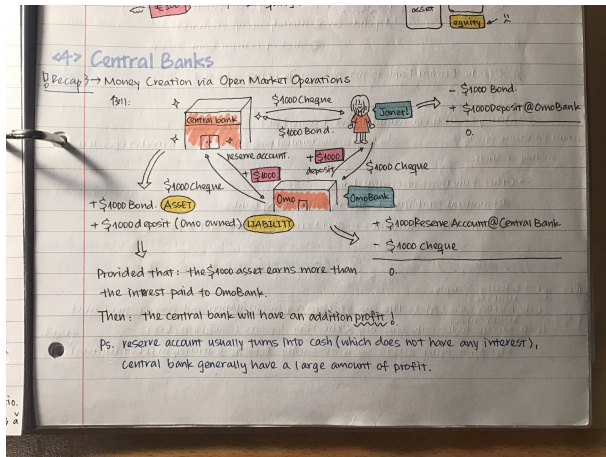 asset
equity
<4> Central Banks
Recap → Money Creation via Open Market Operations
central bank
$1000 Cheque
$1000 Bond.
Janet!
- $1000 Bond.
+ $1000 Deposit @OmoBank
0.
reserve account.
+ $1000
+ $1000
deposit
$1000 Cheque
$1000 Cheque
Omo
OmoBank
+ $1000 Bond. ASSET
+ $1000 deposit (Omo owned) LIABILITY
+ $1000 Reserve Account @ Central Bank
- $1000 cheque
0.
Provided that: the $1000 asset earns more than
the interest paid to OmoBank.
Then: the central bank will have an addition profit!
Ps. reserve account usually turns into cash (which does not have any interest),
central bank generally have a large amount of profit.